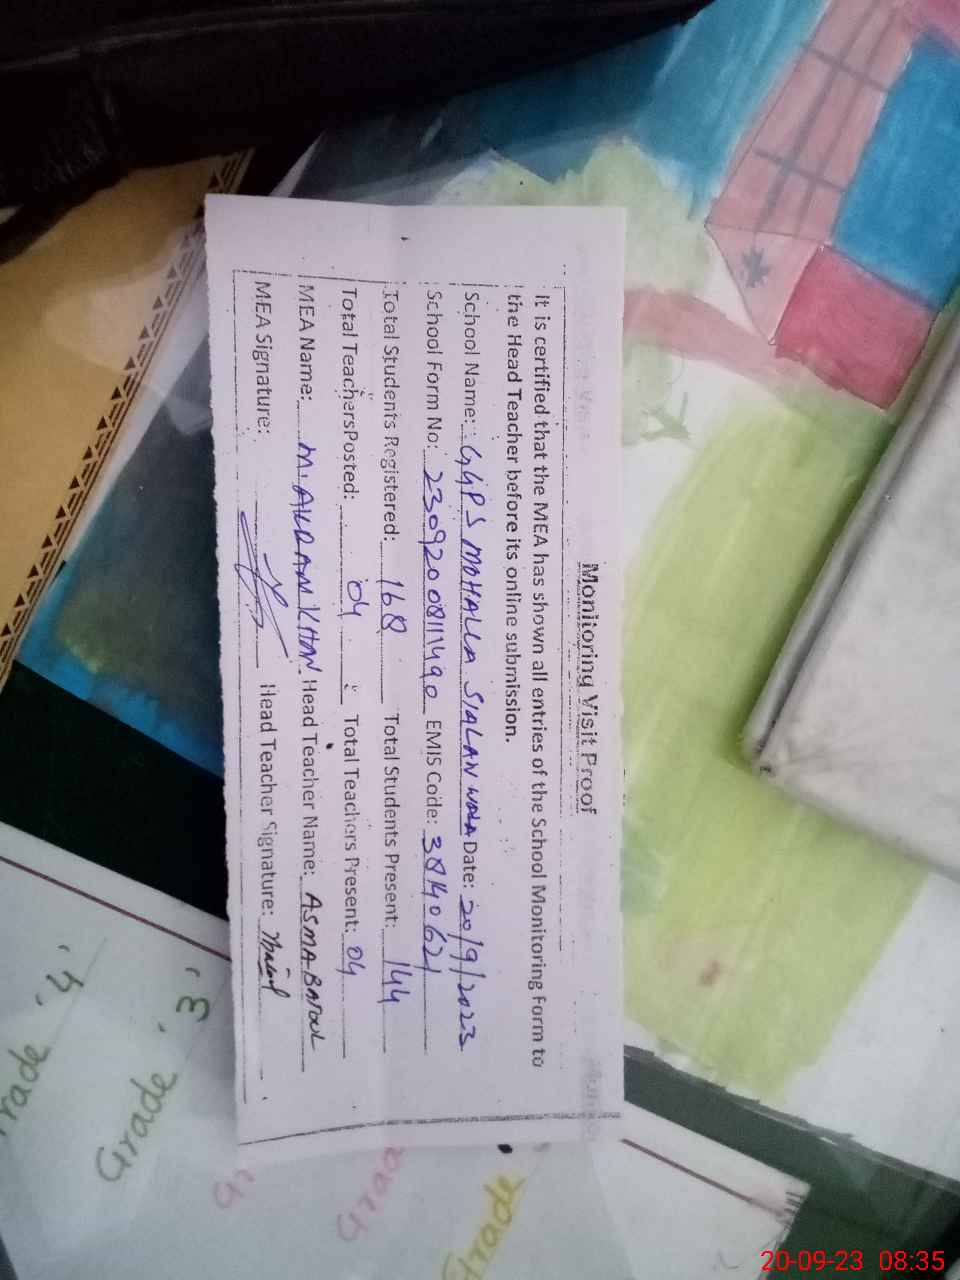 Monitoring Visit Proof
It is certified that the MEA has shown all entries of the School Monitoring Form to
the Head Teacher before its online submission.
School Name: GGPS MOHALLA SIALAN WALA Date: 20/9/2023
School Form No: 230920081490 EMIS Code: 38140621
Total Students Registered: 168 Total Students Present: 144
Total Teachers Posted: 04 Total Teachers Present: 04
MEA Name: M. AKRAM KHAN Head Teacher Name: ASMA BATOOL
MEA Signature: Head Teacher Signature:
rade '4'
Grade '3'
Gr
Grad
Grade
20-09-23 08:35